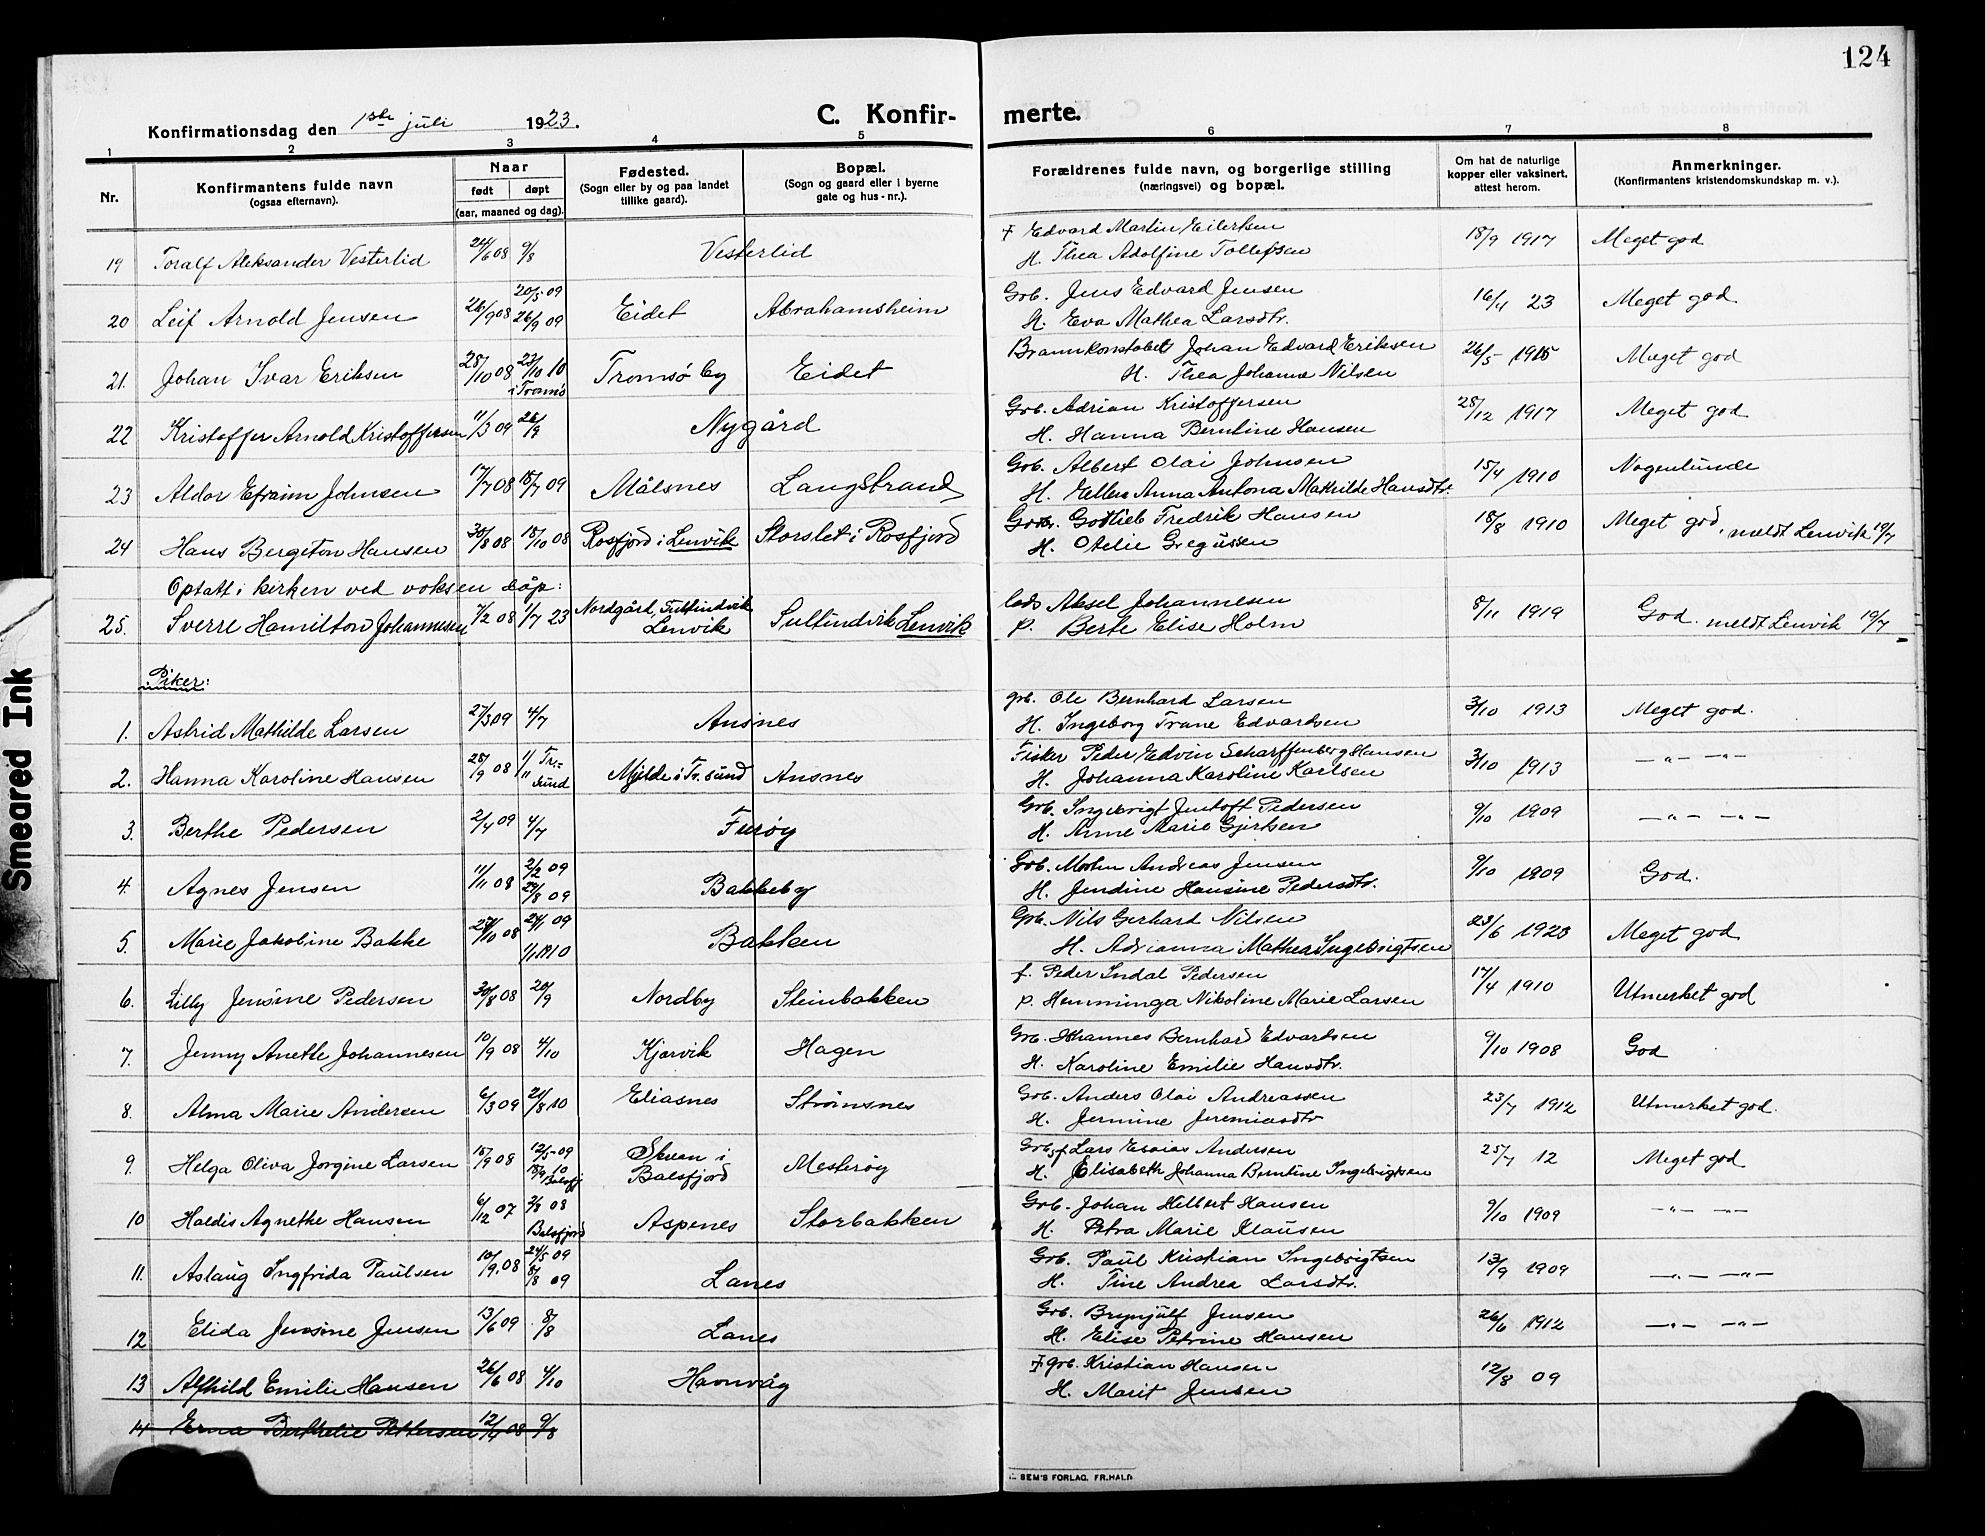 124
Konfirmationsdag den 1ste juli 1923.
C. Konfirmerte.
1 2 3 4 5 6 7 8
Nr.
Konfirmantens fulde navn
(ogsaa efternavn).
Naar
født døpt
(aar, maaned og dag).
Fødested.
(Sogn eller by og paa landet
tillike gaard).
Bopæl.
(Sogn og gaard eller i byerne
gate og hus-nr.).
Forældrenes fulde navn, og borgerlige stilling
(næringsvei) og bopæl.
Om hat de naturlige
kopper eller vaksinert,
attest herom.
Anmerkninger.
(Konfirmantens kristendomskundskap m. v.).
19 Toralf Aleksander Vesterlid 24/6 08 9/8 Vesterlid
F Edvard Martin Eilertsen
H. Thea Adolfine Tollefsen
18/9 1917 Meget god
20 Leif Arnold Jensen 26/9 08 20/5 09 26/9 09 Eidet Abrahamsheim
Grb. Jens Edvard Jensen
H. Eva Mathea Larsdtr.
16/4 23 Meget god
21. Johan Ivar Eriksen 28/10 08 23/10 10 i Tromsø Tromsø by Eidet
Brannkonstabel Johan Edvard Eriksen
H. Thea Johanna Nilsen
26/5 1915 Meget god
22 Kristoffer Arnold Kristoffersen 11/3 09 26/9 Nygård
Grb. Adrian Kristoffersen
H. Hanna Berntine Hansen
28/12 1917 Meget god
23 Aldor Efraim Johnsen 17/7 08 18/7 09 Målsnes Langstrand
Grb. Albert Olai Johnsen
H. Ellen Anna Antona Mathilde Hansdtr.
15/4 1910 Nogenlunde
24 Hans Bergeton Hansen 30/8 08 18/10 08 Rosfjord i Lenvik Storslet i Rosfjord
Gotlieb Fredrik Hansen
H. Otelie Gregussen
18/8 1910 Meget god, meldt Lenvik 19/7
Optatt i kirken ved voksen dåp:
25. Sverre Hamilton Johannesen 7/2 08 1/7 23 Nordgård, Lenvik Lenvik
Aksel Johannesen
p. Berte Elise Holm
8/11 1919 God. meldt Lenvik 19/7
Piker:
1. Astrid Mathilde Larsen 27/3 09 4/7 Ansnes
grb. Ole Bernhard Larsen
H. Ingeborg Trane Edvardsen
3/10 1913 Meget god.
2. Hanna Karoline Hansen 28/9 08 1/11 Tr.sund Mjelde i Tr.sund Ansnes
Fisker Peder Edvin Scharffenberg Hansen
H. Johanna Karoline Karlsen
3/10 1913 —"— —"—
3. Berthe Pedersen 2/4 09 4/7 Furøy
Grb. Ingebrigt Jentoft Pedersen
H. Anne Marie Gjertsen
9/10 1909 —"— —"—
4. Agnes Jensen 11/11 08 2/2 09 29/8 09 Bakkeby
Grb. Morten Andreas Jensen
H. Jendine Hansine Pedersdtr.
9/10 1909 God.
5. Marie Jakobine Bakke 27/10 08 24/1 09 Bakken
Grb. Nils Gerhard Nilsen
H. Adrianna Mathea Ingebrigtsen
23/6 1923 Meget god
6. Lilly Jensine Pedersen 30/8 08 20/9 Nordby Steinbakken
f. Peder Indal Pedersen
p. Hemminga Nikoline Marie Larsen
17/4 1910 Utmerket god
7. Jenny Anette Johannesen 10/9 08 4/10 Kjørvik Hagen
Grb. Johannes Bernhard Edvardsen
H. Karoline Emilie Hansdtr.
9/10 1908 God
8. Alma Marie Andersen 6/3 09 21/8 10 Eliasnes Strømsnes
Grb. Anders Olai Andreassen
H. Jermine Jeremiasdtr
23/7 1912 Utmerket god.
9. Helga Oliva Jorgine Larsen 15/9 08 12/5 09 18/9 10 Balsfj Skuen i Balsfjord Mesterøy
Grb. f Lars Esaias Andersen
H. Elisabeth Johanna Berntine Ingebrigtsen
25/7 12 Meget god
10 Haldis Agnethe Hansen 6/12 07 2/8 08 Balsfjord Aspenes Storbakken
Grb. Johan Hilbert Hansen
H. Petra Marie Klausen
9/10 1909 —"— —"—
11. Aslaug Ingfrida Paulsen 10/9.08 24/5 09 8/8 09 Lanes
Grb. Paul Kristian Ingebrigtsen
H. Tine Andrea Larsdtr.
13/9 1909 —"— —"—
12 Elida Jensine Jensen 13/6 09 8/8 Lanes
Grb. Brynjulf Jensen
H. Elise Petrine Hansen
26/6 1912 —"— —"—
13 Alfhild Emilie Hansen 26/6 08 4/10 Havnvåg
F grb. Kristian Hansen
H. Marit Jensen
12/8 09
14 Erna Berthelie Pettersen 12/4 08 9/8
SEM'S FORLAG, FR.HALD
Smeared Ink